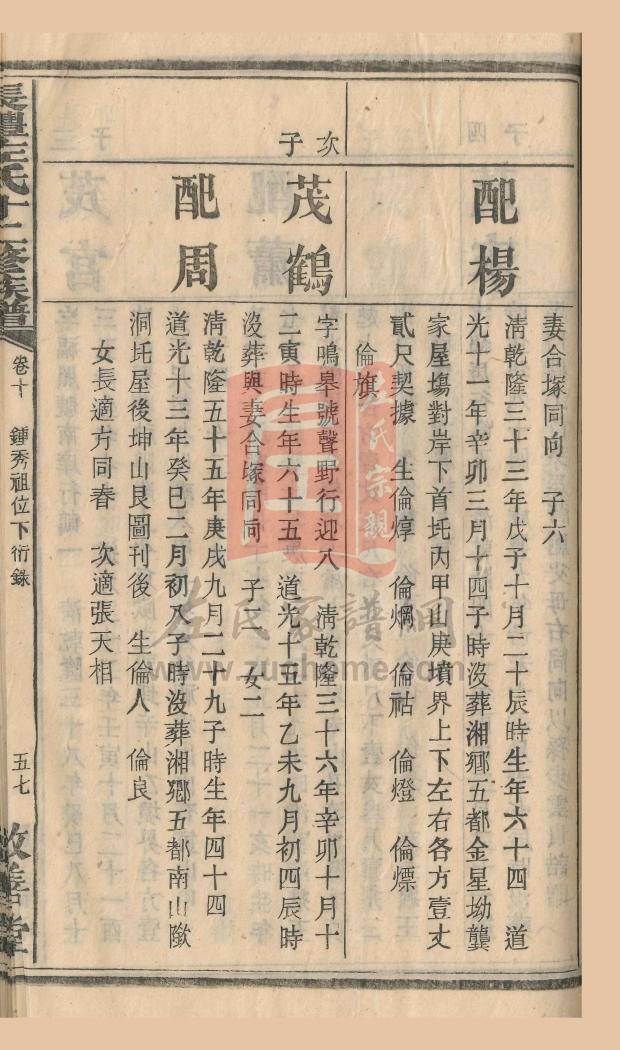 妻合塚同向　子六
配楊
淸乾隆三十三年戊子十月二十辰時生年六十四　道
光十一年辛卯三月十四子時沒葬湘鄉五都金星坳龔
家屋塲對岸下首圫丙甲山庚墳界上下左右各方壹丈
貳尺契據　生倫焞　倫烱　倫祜　倫燈　倫熛
倫旗
次子
茂鶴
字鳴皋號聲野行迎八　淸乾隆三十六年辛卯十月十
二寅時生年六十五　道光十五年乙未九月初四辰時
沒葬與妻合塚同向　子二　女二
配周
淸乾隆五十五年庚戌九月二十九子時生年四十四
道光十三年癸巳二月初八子時沒葬湘鄉五都南山
洞圫屋後坤山艮圖刊後　生倫人　倫良
女長適方同春　次適張天相
長澧左氏十二修族譜
卷十　鍾秀祖位下衍錄
五七
敦善堂
左氏宗親
左氏家譜網
www.zuohome.com